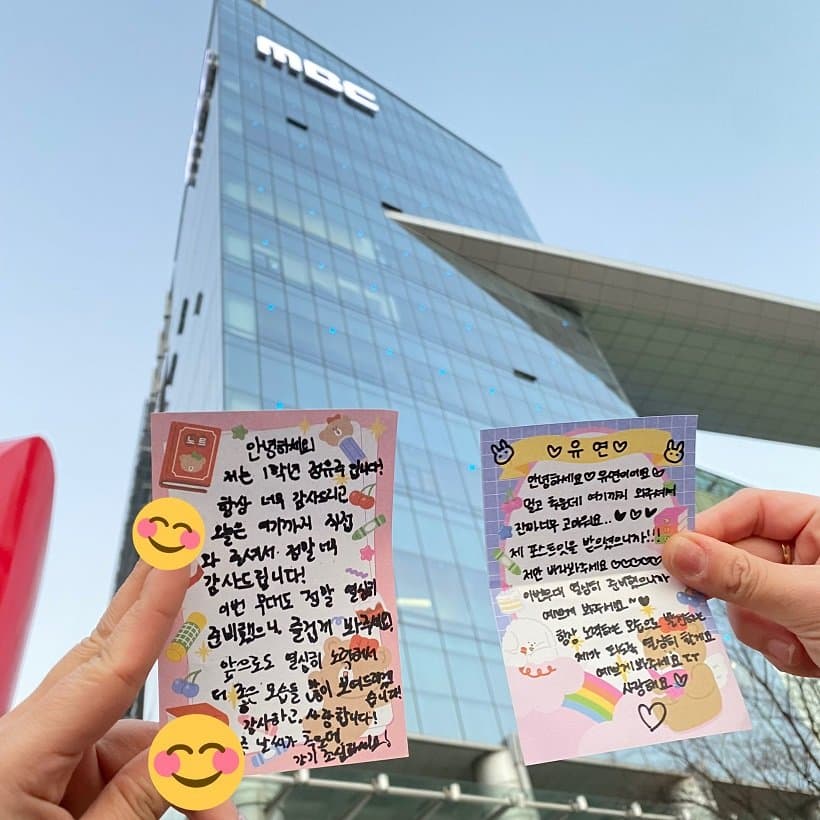 MBC
노트
안녕하세요
저는 1학년 정유주입니다!
항상 너무 감사드리고
오늘은 여기까지 직접
와 주셔서 정말 너무
감사드립니다!
이번 무대도 정말 열심히
준비했으니 즐겁게 봐주세요.
앞으로도 열심히 노력해서
더 좋은 모습을 많이 보여드리겠
습니다!
감사하고, 사랑합니다!
날씨가 추운데
감기 조심하세요!
♡유연♡
안녕하세요♡유연이에요♡
멀고 추운데 여기까지 와주셔서
진짜너무 고마워요...♥♡♥
제 포스트잇을 받았으니까!!!
저만 바라봐주세요♡♡♡♡♡
이번무대 열심히 준비했으니까
예쁘게 봐주세요~♥
항상 노력하는 모습으로
제가 되도록 열심히 할게요
예쁘게 봐주세요ㅜㅜ
사랑해요♡
♡